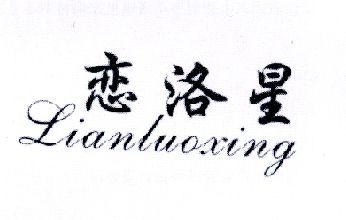 恋洛星
Lianluoxing